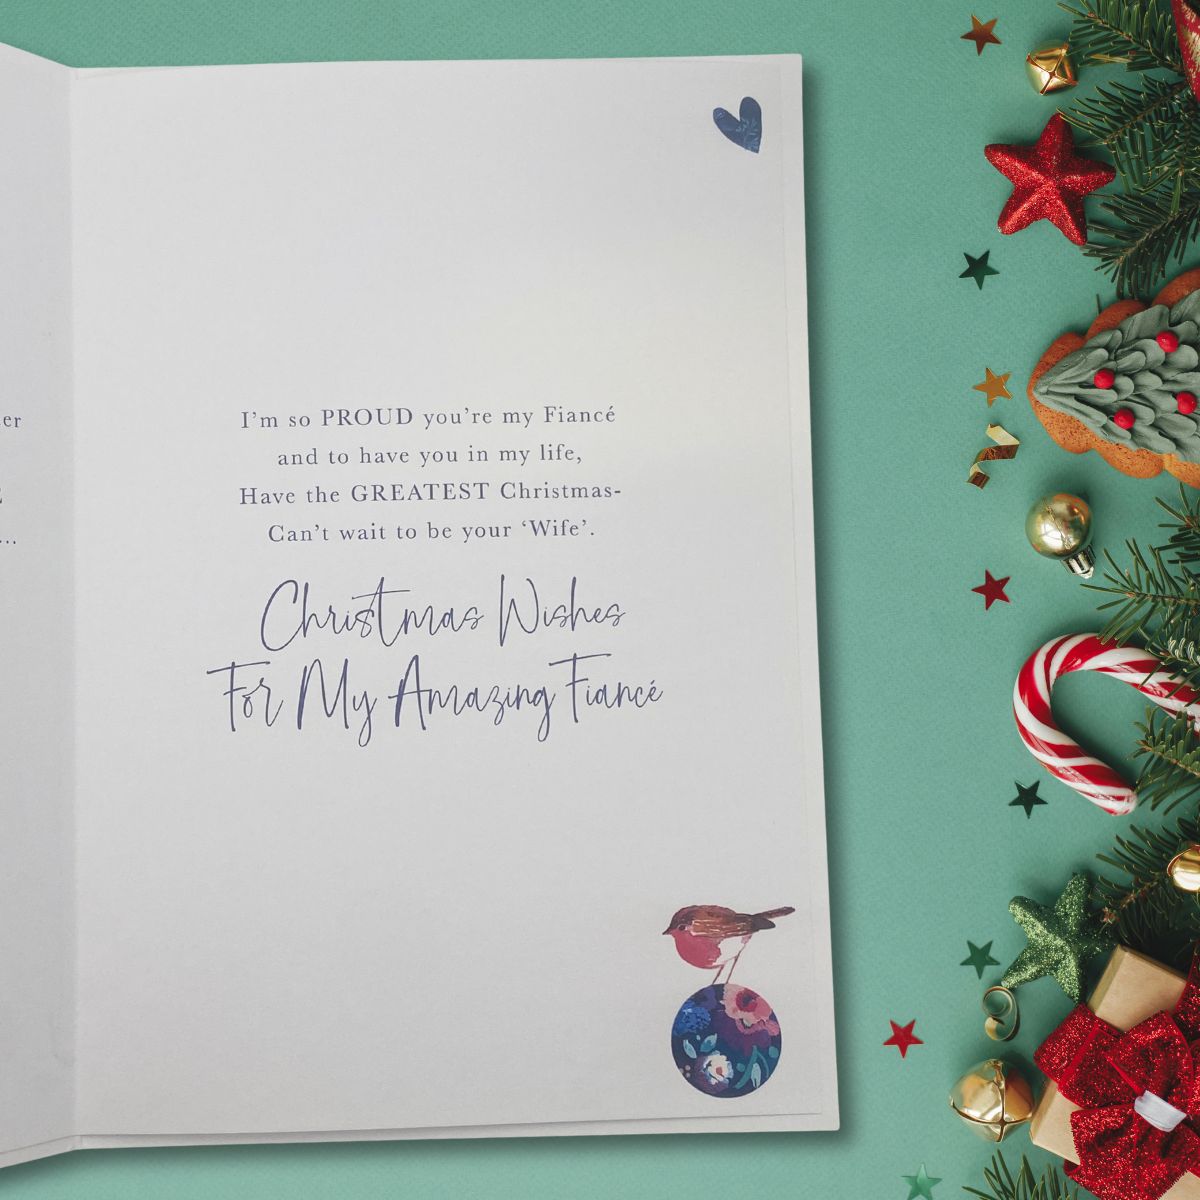 er
E
...
I'm so PROUD you're my Fiancé
and to have you in my life,
Have the GREATEST Christmas-
Can't wait to be your ‘Wife’.
Christmas Wishes
For My Amazing Fiancé